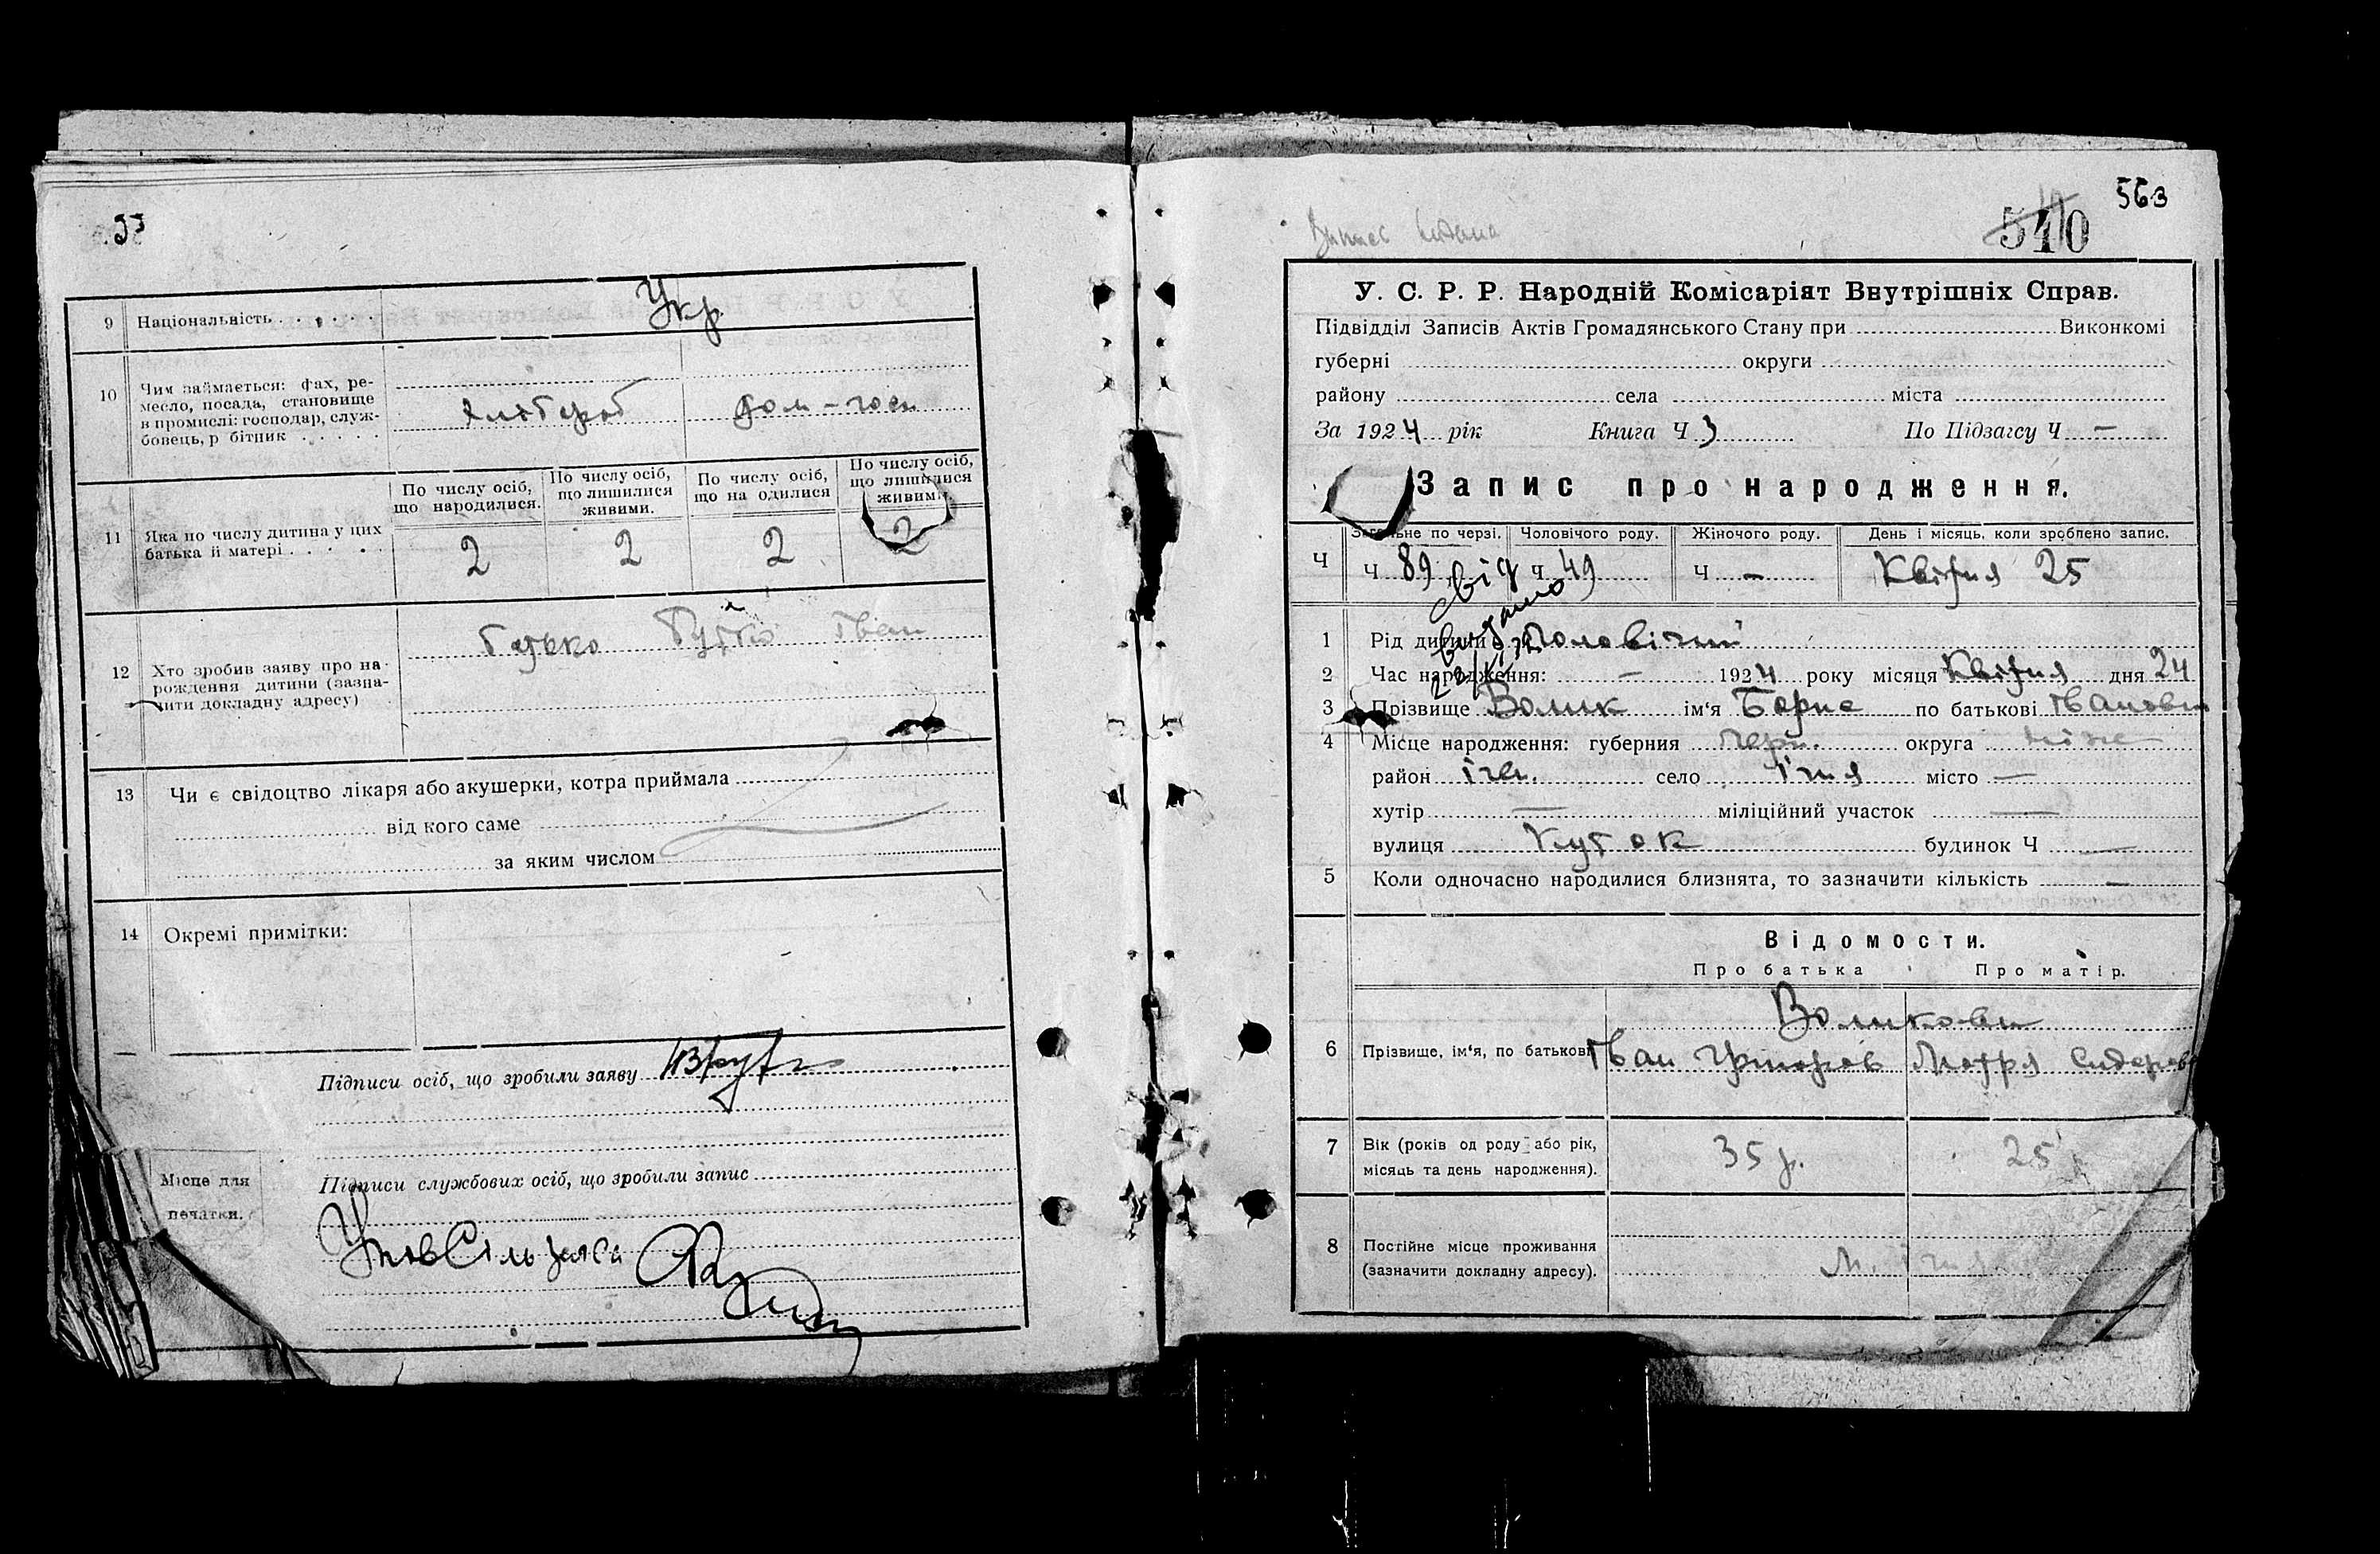 9 Національність . . . . . . Укр.
10 Чим займається: фах, ре-
месло, посада, становище
в промислі: господар, служ-
бовець, р бітник . . . . .
хлібороб дом-госп
11 Яка по числу дитина у цих
батька й матері . . . . .
По числу осіб,
що народилися.
По числу осіб,
що лишилися
живими.
По числу осіб,
що на одилися
По числу осіб,
що лишилися
живими.
2 2 2 2
12 Хто зробив заяву про на-
рождення дитини (зазна-
чити докладну адресу)
батько Іван
13 Чи є свідоцтво лікаря або акушерки, котра приймала
від кого саме
за яким числом
14 Окремі примітки:
Підписи осіб, що зробили заяву
Підписи службових осіб, що зробили запис
Місце для
печатки.
563
540
У. С. Р. Р. Народній Комісаріят Внутрішніх Справ.
Підвідділ Записів Актів Громадянського Стану при Виконкомі
губерні округи
району села міста
За 1924 рік Книга Ч 3 По Підзагсу Ч —
Запис про народження.
Загальне по черзі. Чоловічого роду. Жіночого роду. День і місяць, коли зроблено запис.
Ч Ч 89 Ч 49 Ч — Квітня 25
свід
видано
1 Рід дитини Чоловічий
2 Час народження: — 1924 року місяця Квітня дня 24
3 Прізвище Волик ім'я Борис по батькові Іванович
4 Місце народження: губерния Черн. округа Ніже
район Ічн. село Ічня місто —
хутір — міліційний участок —
вулиця Куток будинок Ч —
5 Коли одночасно народилися близнята, то зазначити кількість —
Відомости.
Про батька Про матір.
Воликови
6 Прізвище, ім'я, по батькові Іван Мотря Сидоров
7 Вік (років од роду або рік,
місяць та день народження).
35 р. 25
8 Постійне місце проживання
(зазначити докладну адресу).
м. Ічня